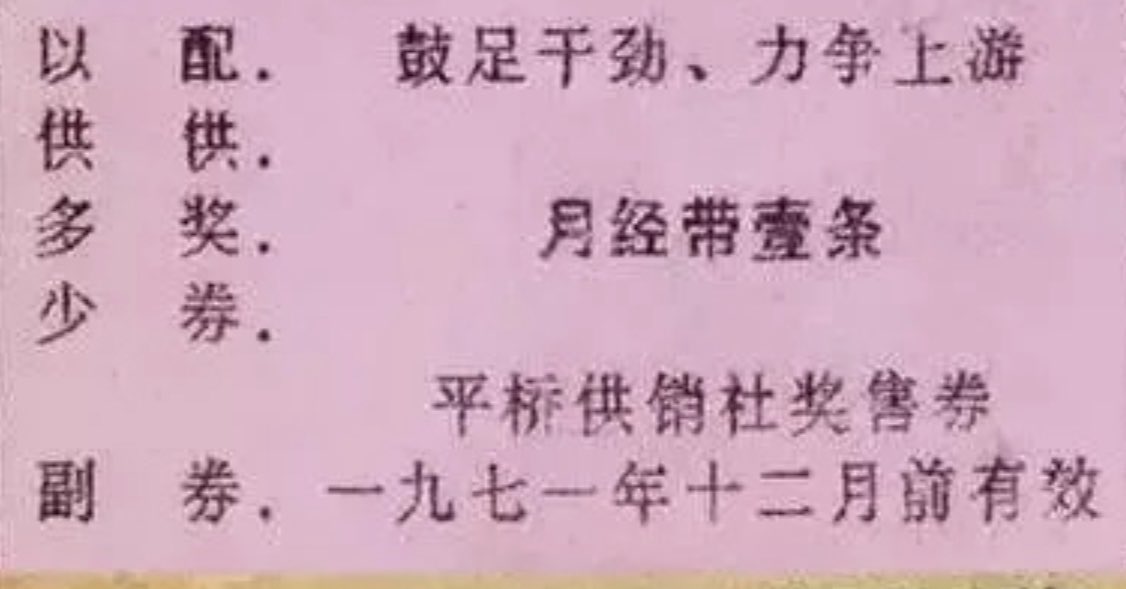 以 配. 鼓足干劲、力争上游
供 供.
多 奖. 月经带壹条
少 券.
平桥供销社奖售券
副 券. 一九七一年十二月前有效